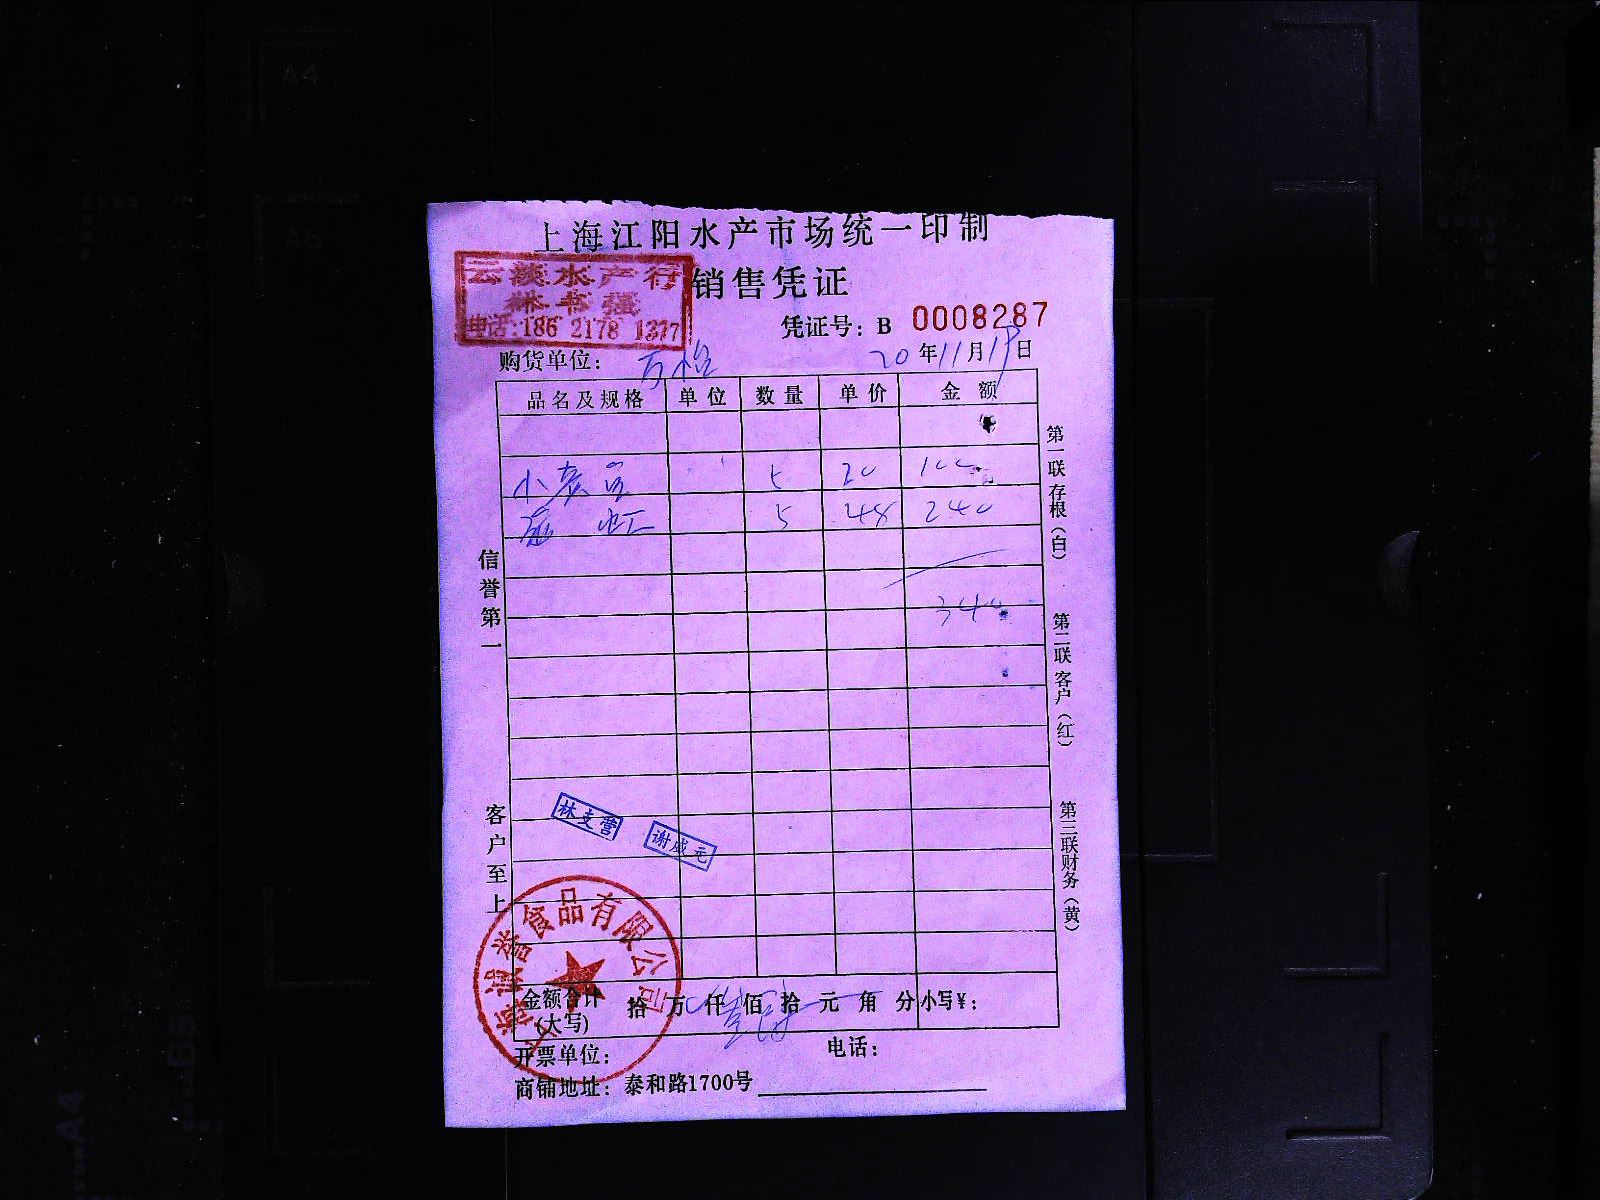 上海江阳水产市场统一印制
云淡水产行
林书强
电话:186 2178 1377
销售凭证
凭证号: B 0008287
购货单位: 万格
20 年 11 月 19 日
品名及规格 单位 数量 单价 金额
小 5 20 100
虹 5 48 240
340
信誉第一
客户至上
第一联存根(白)
第二联客户(红)
第三联财务(黄)
林支营
谢成元
诚誉食品有限公司
金额合计(大写) 拾 万 仟 佰 拾 元 角 分 小写¥:
开票单位: 电话:
商铺地址: 泰和路1700号